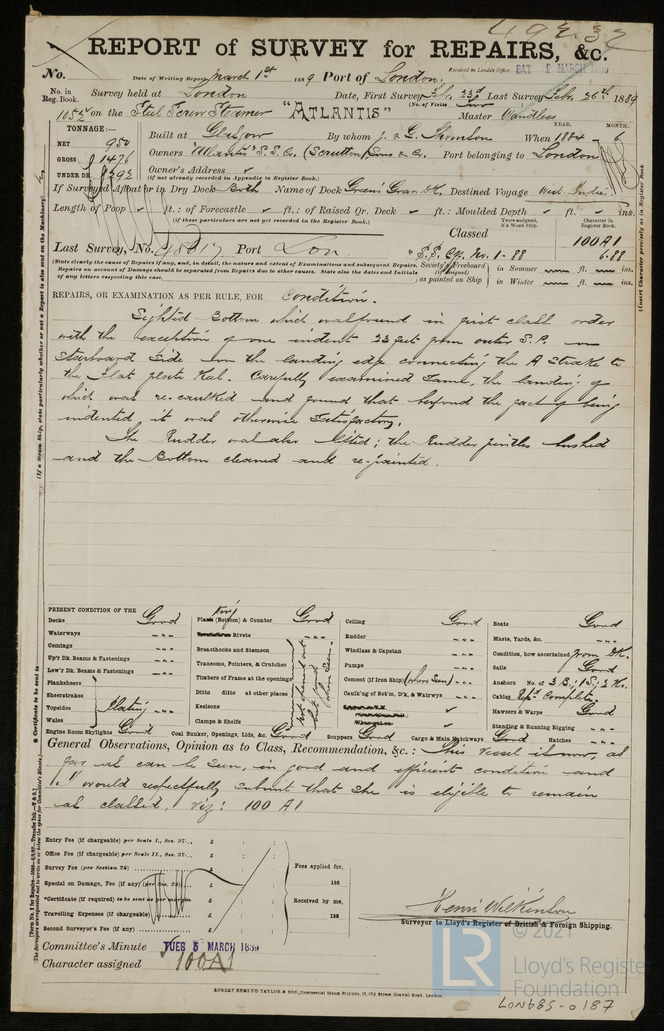 REPORT of SURVEY for REPAIRS, &c.
No. Date of Writing Report March 1st 1889 Port of London. Received at London Office, SAT 2 MARCH 1889
No. in Reg. Book. Survey held at London Date, First Survey Feb. 23d Last Survey Feb. 26th 1889
(No. of Visits Two)
1055 on the Steel Screw Steamer "ATLANTIS" Master
TONNAGE:—
NET 950
GROSS 1476
UNDER DK 1392
Built at Glasgow By whom J. & G. Thomson When 1884 - 6
YEAR. MONTH.
Owners "Atlantis" S.S. Co. (Scrutton, Sons & Co. Port belonging to London
Owner's Address ✓
(If not already recorded in Appendix to Register Book.)
If Surveyed Afloat or in Dry Dock Both Name of Dock Green's Grav. Dk. Destined Voyage West Indies
Length of Poop ✓ ft.: of Forecastle ✓ ft.: of Raised Qr. Deck ✓ ft.: Moulded Depth ✓ ft. ✓ ins.
(If these particulars are not yet recorded in the Register Book.)
Classed 100A1
Character in Register Book.
6.88
Last Survey, No. Port Lon.
(State clearly the cause of Repairs if any, and, in detail, the nature and extent of Examinations and subsequent Repairs.
Repairs on account of Damage should be separated from Repairs due to other causes. State also the dates and Initials
of any letters respecting this case.
Society's Freeboard (if assigned) as painted on Ship
in Summer ft. ins.
in Winter ft. ins.
REPAIRS, OR EXAMINATION AS PER RULE, FOR Condition.
Sighted Bottom which was found in first class order
with the exception of one indent 23 feet from outer S.P. on
Starboard Side on the landing edge connecting the A Strake to
the flat plate Keel. Carefully examined same, the landing of
which was re-caulked and found that beyond the fact of being
indented it was otherwise satisfactory.
The Rudder was also lifted; the Rudder pintles bushed
and the Bottom cleaned and re-painted.
PRESENT CONDITION OF THE
Decks Good
Waterways
Comings
Up'r Dk. Beams & Fastenings
Low'r Dk. Beams & Fastenings
Planksheers
Sheerstrakes
Topsides
Wales
Plating
Engine Room Skylights Good
Plank (Bottom) & Counter Good
Rivets
Breasthooks and Stemson
Transoms, Pointers, & Crutches
Timbers of Frame at the openings
Ditto ditto at other places
Keelsons
Clamps & Shelfs
Coal Bunker, Openings, Lids, &c. Good
Ceiling Good
Rudder
Windlass & Capstan
Pumps
Cement (if Iron Ship) (where seen)
Caulk'ng of Bot'm, D'k, & Watrwys
Scuppers Good
Cargo & Main Hatchways Good
Boats Good
Masts, Yards, &c.
Condition, how ascertained from Dk.
Sails Good
Anchors No. of 3 B.; 1 S.; 2 K.
Cables Complete
Hawsers & Warps Good
Standing & Running Rigging
Hatches
General Observations, Opinion as to Class, Recommendation, &c.: This vessel is now, as
far as can be seen, in good and efficient condition and
I would respectfully submit that she is eligible to remain
as classed. viz: 100 A1
Entry Fee (if chargeable) per Scale I., Sec. 27.., £ : :
Office Fee (if chargeable) per Scale II., Sec. 27.., £ : :
Survey Fee (per Section 28) £ : :
Special on Damage, Fee (if any) (per Sec. 28).. £ : :
*Certificate (if required) to be sent as per margin £ : :
Travelling Expenses (if chargeable) £ : :
Second Surveyor's Fee (if any) £ : :
Fees applied for,
188
Received by me,
188
Henri Wilkinson
Surveyor to Lloyd's Register of British & Foreign Shipping.
Committee's Minute TUES 5 MARCH 1889
Character assigned 100A1
ROBERT EDMUND TAYLOR & SON, Commercial Steam Printers, 19, Old Street, Goswell Road, London.
© 2021
LR
Lloyd's Register
Foundation
LON685-0187